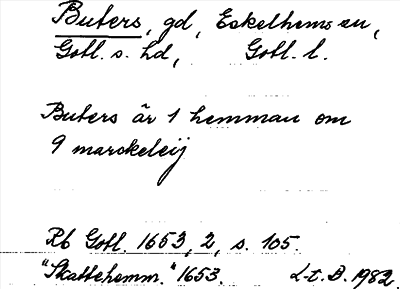 Buters, gd, Eskelhems sn,
Gotl. s. hd, Gotl. l.
Buters är 1 hemman om
9 marckeleij
Rb Gotl. 1653, 2, s. 105.
"Skattehemm." 1653. L-t. D. 1982.